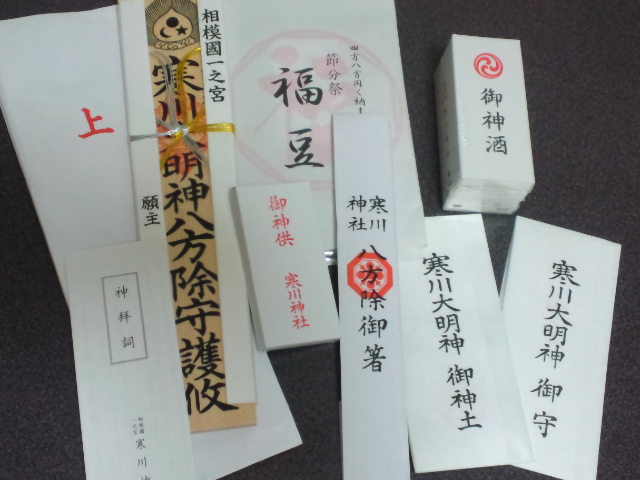 上
相模國一之宮
寒川大明神八方除守護攸
願主
四方八方円く納ま
節分祭
福豆
御神酒
神拝詞
相模國
一之宮
寒川神
御神供
寒川神社
寒川
神社
八方除御箸
寒川大明神 御神土
寒川大明神 御守